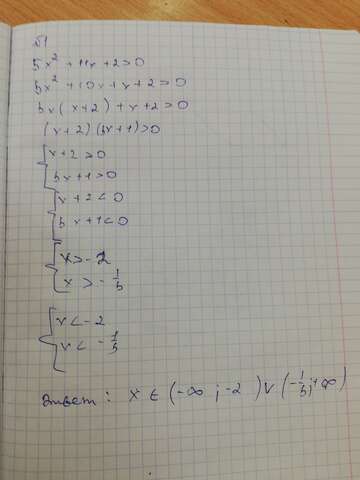 №1
5x² + 11x + 2 > 0
5x² + 10x + x + 2 > 0
5x(x+2) + x + 2 > 0
(x+2)(5x+1) > 0
x+2 > 0
5x+1 > 0
x+2 < 0
5x+1 < 0
x > -2
x > -1/5
x < -2
x < -1/5
Ответ: x ∈ (-∞; -2) ∪ (-1/5; +∞)